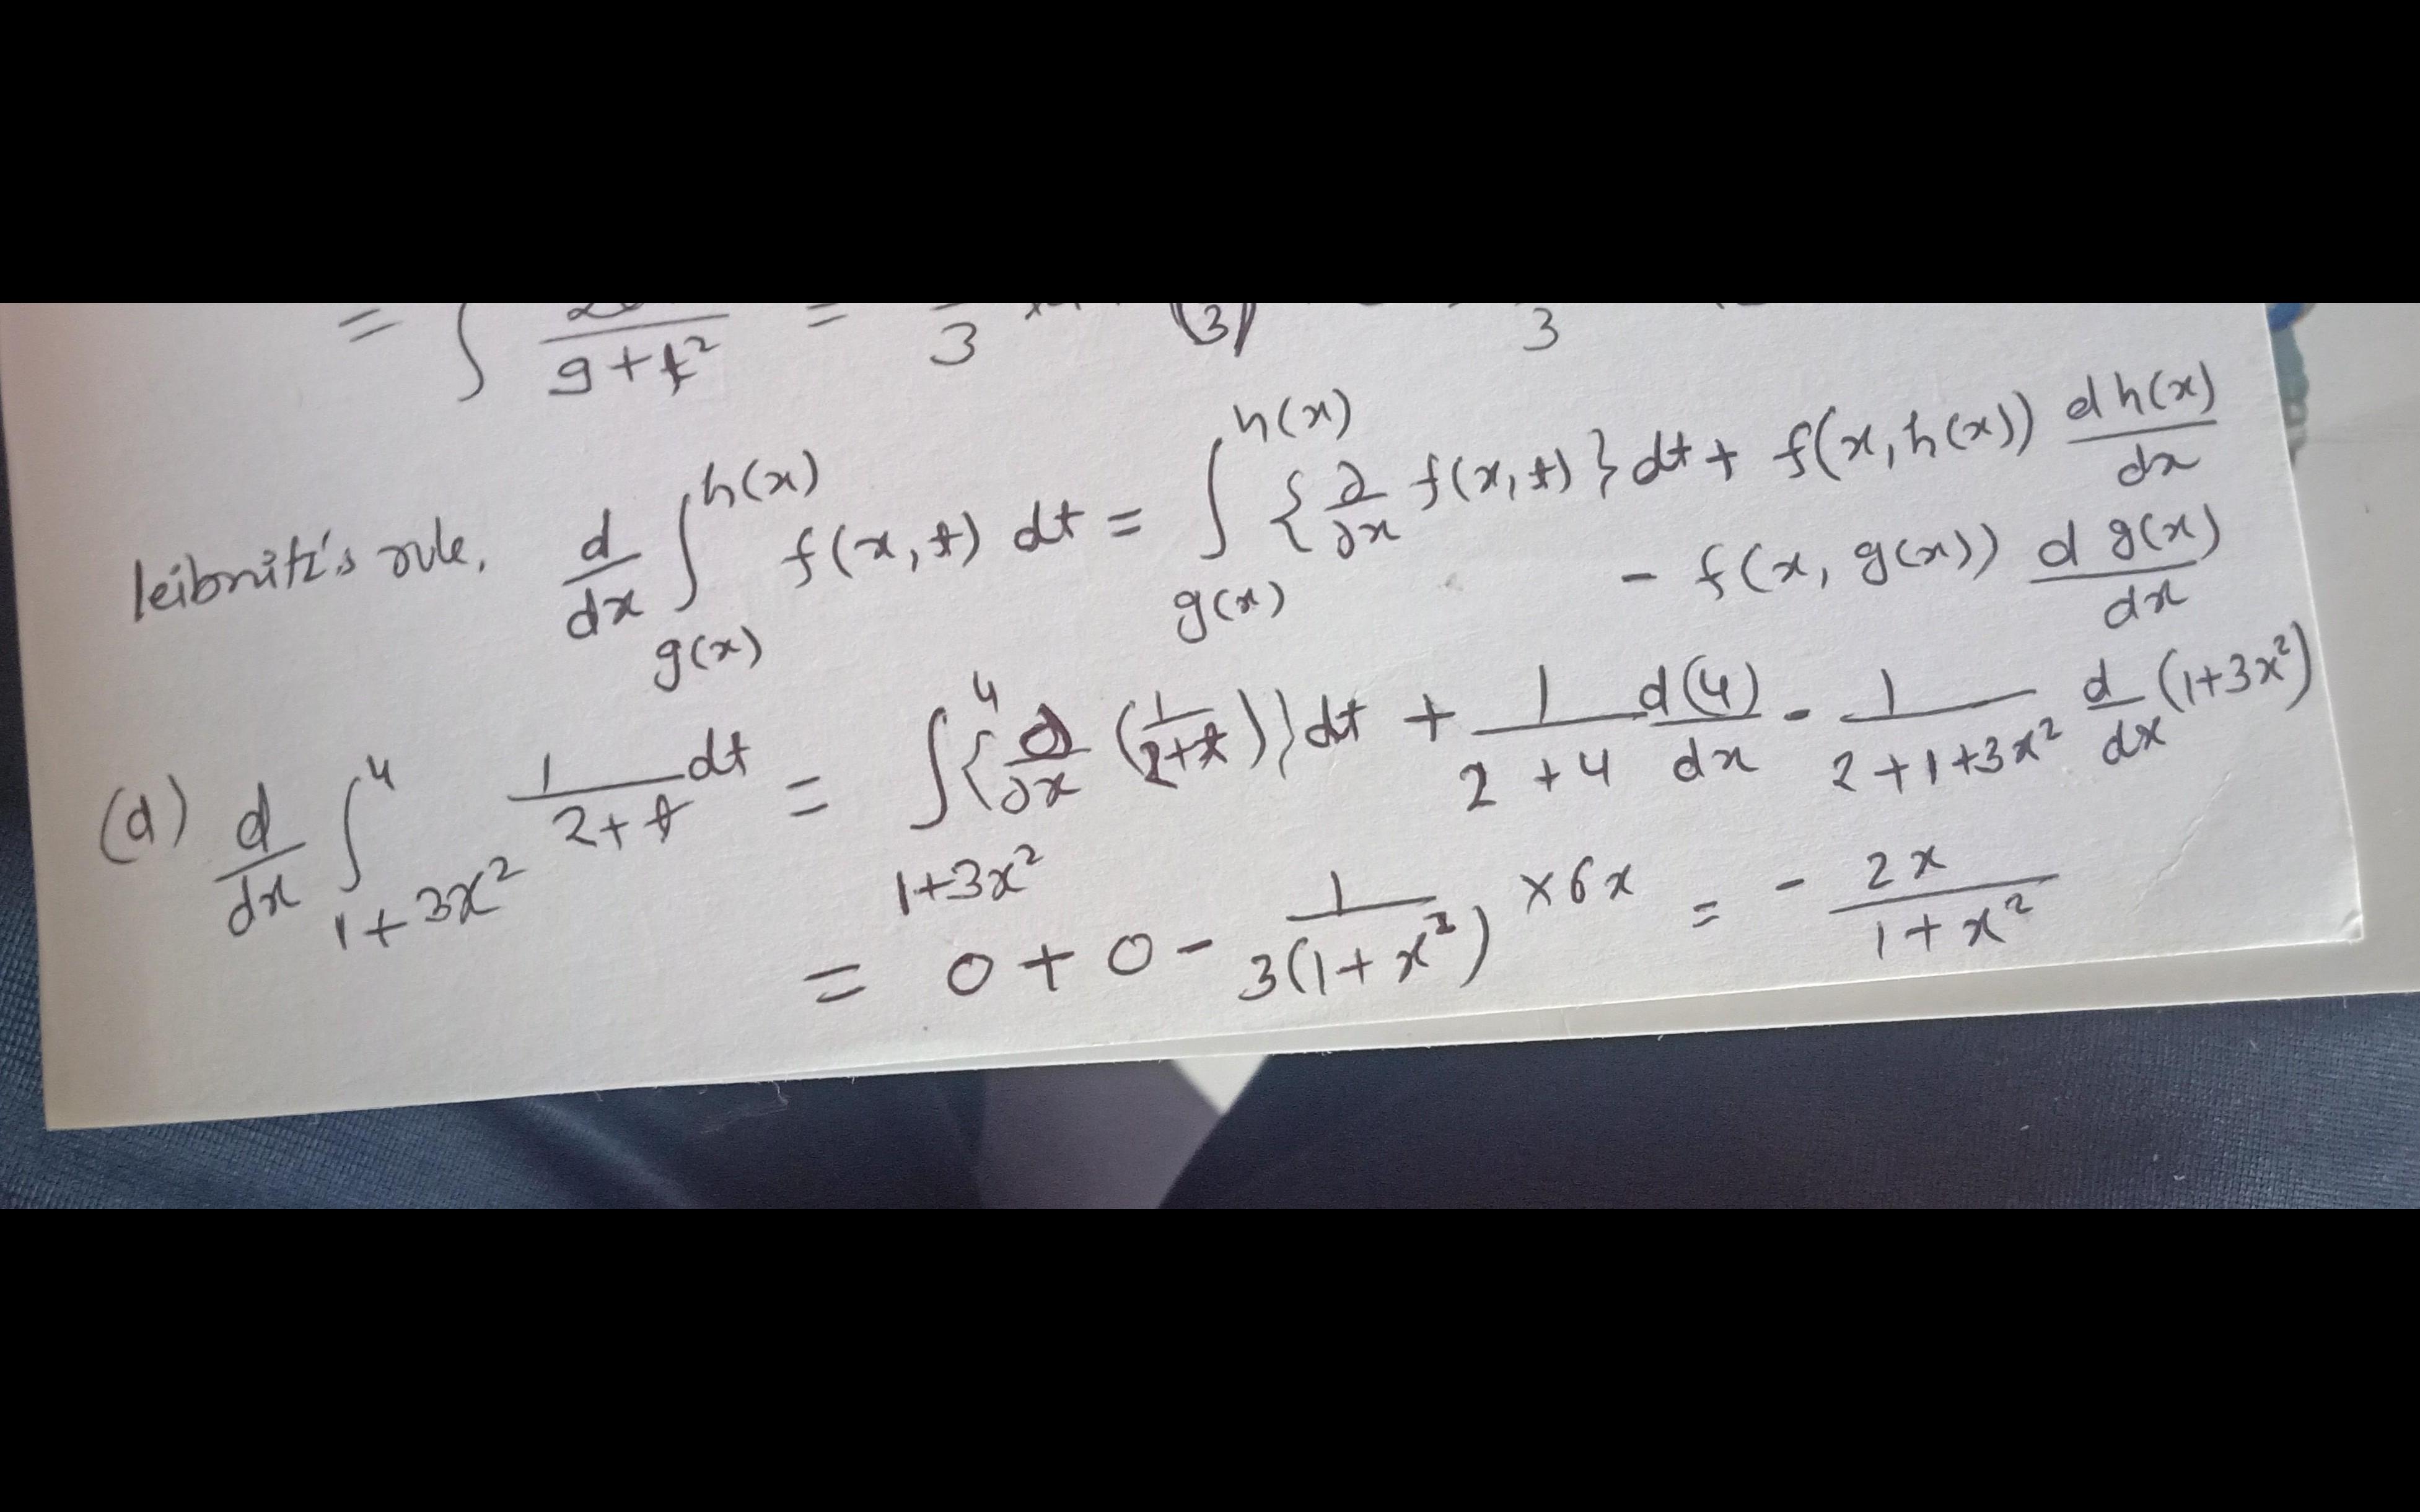 = ∫ 9+t² = 3 (3) 3
leibnitz's rule, d/dx ∫_{g(x)}^{h(x)} f(x,t) dt = ∫_{g(x)}^{h(x)} {∂/∂x f(x,t)} dt + f(x,h(x)) dh(x)/dx
- f(x, g(x)) d g(x)/dx
(d) d/dx ∫_{1+3x²}^{4} 1/(2+t) dt = ∫_{1+3x²}^{4} {∂/∂x (1/(2+t))} dt + 1/(2+4) d(4)/dx - 1/(2+1+3x²) d/dx (1+3x²)
= 0 + 0 - 1/(3(1+x²)) × 6x = - 2x/(1+x²)